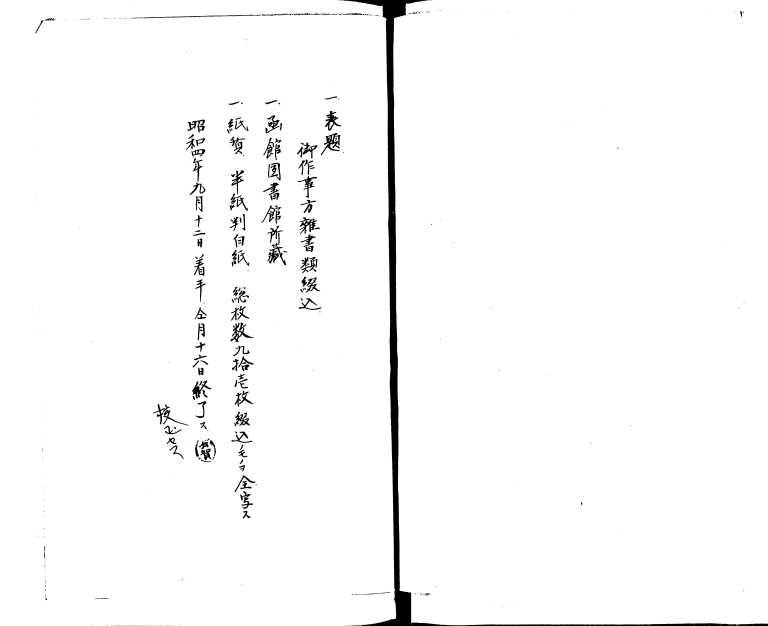 一、表題
御作事方雑書類綴込
一、函館図書館所蔵
一、紙質 半紙判白紙 総枚数九拾壱枚綴込モヲ全写ス
昭和四年九月十二日着手 仝月十六日終了ス
校正セス